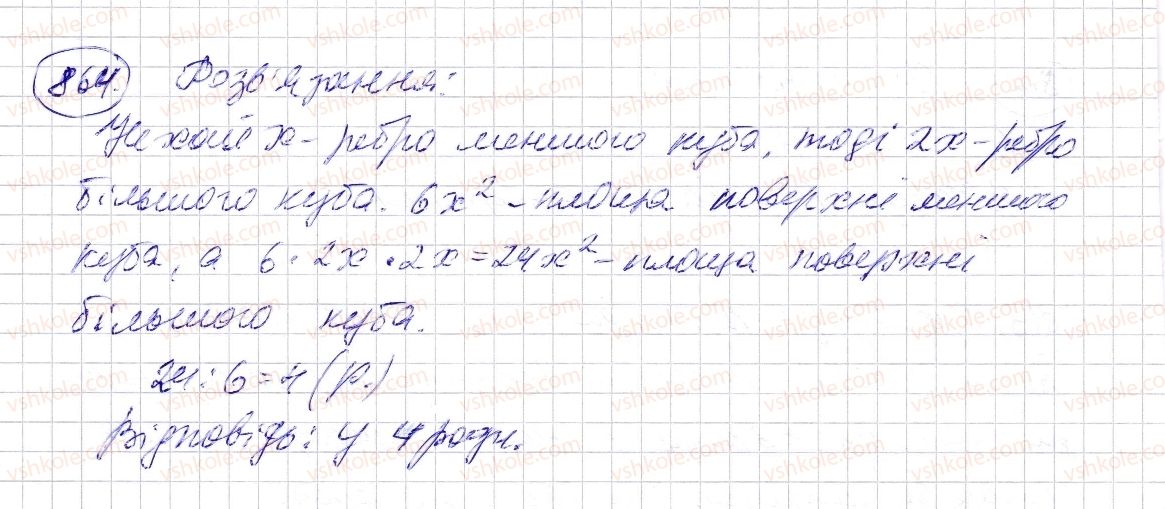 864. Розв'язання:
Нехай x - ребро меншого куба, тоді 2x - ребро
більшого куба. 6x² - площа поверхні меншого
куба, а 6 · 2x · 2x = 24x² - площа поверхні
більшого куба.
24 : 6 = 4 (р.)
Відповідь: у 4 рази.